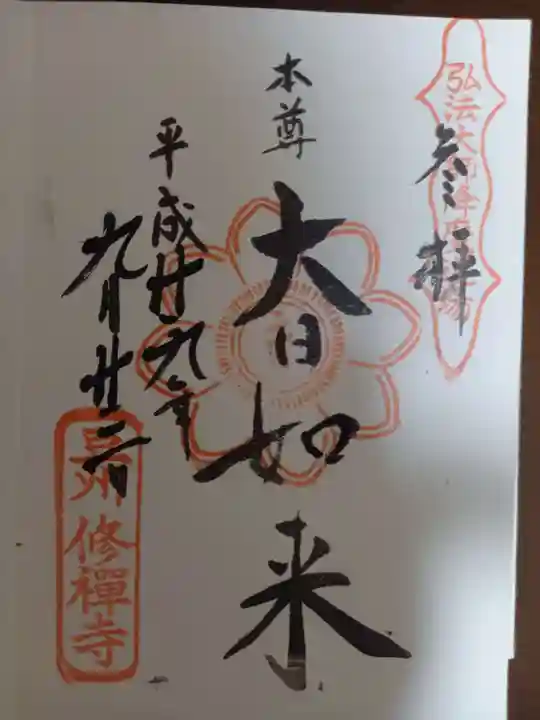 弘法大師降
参拝
本尊
大日如来
平成廿九年
九月廿二日
豆州修禅寺